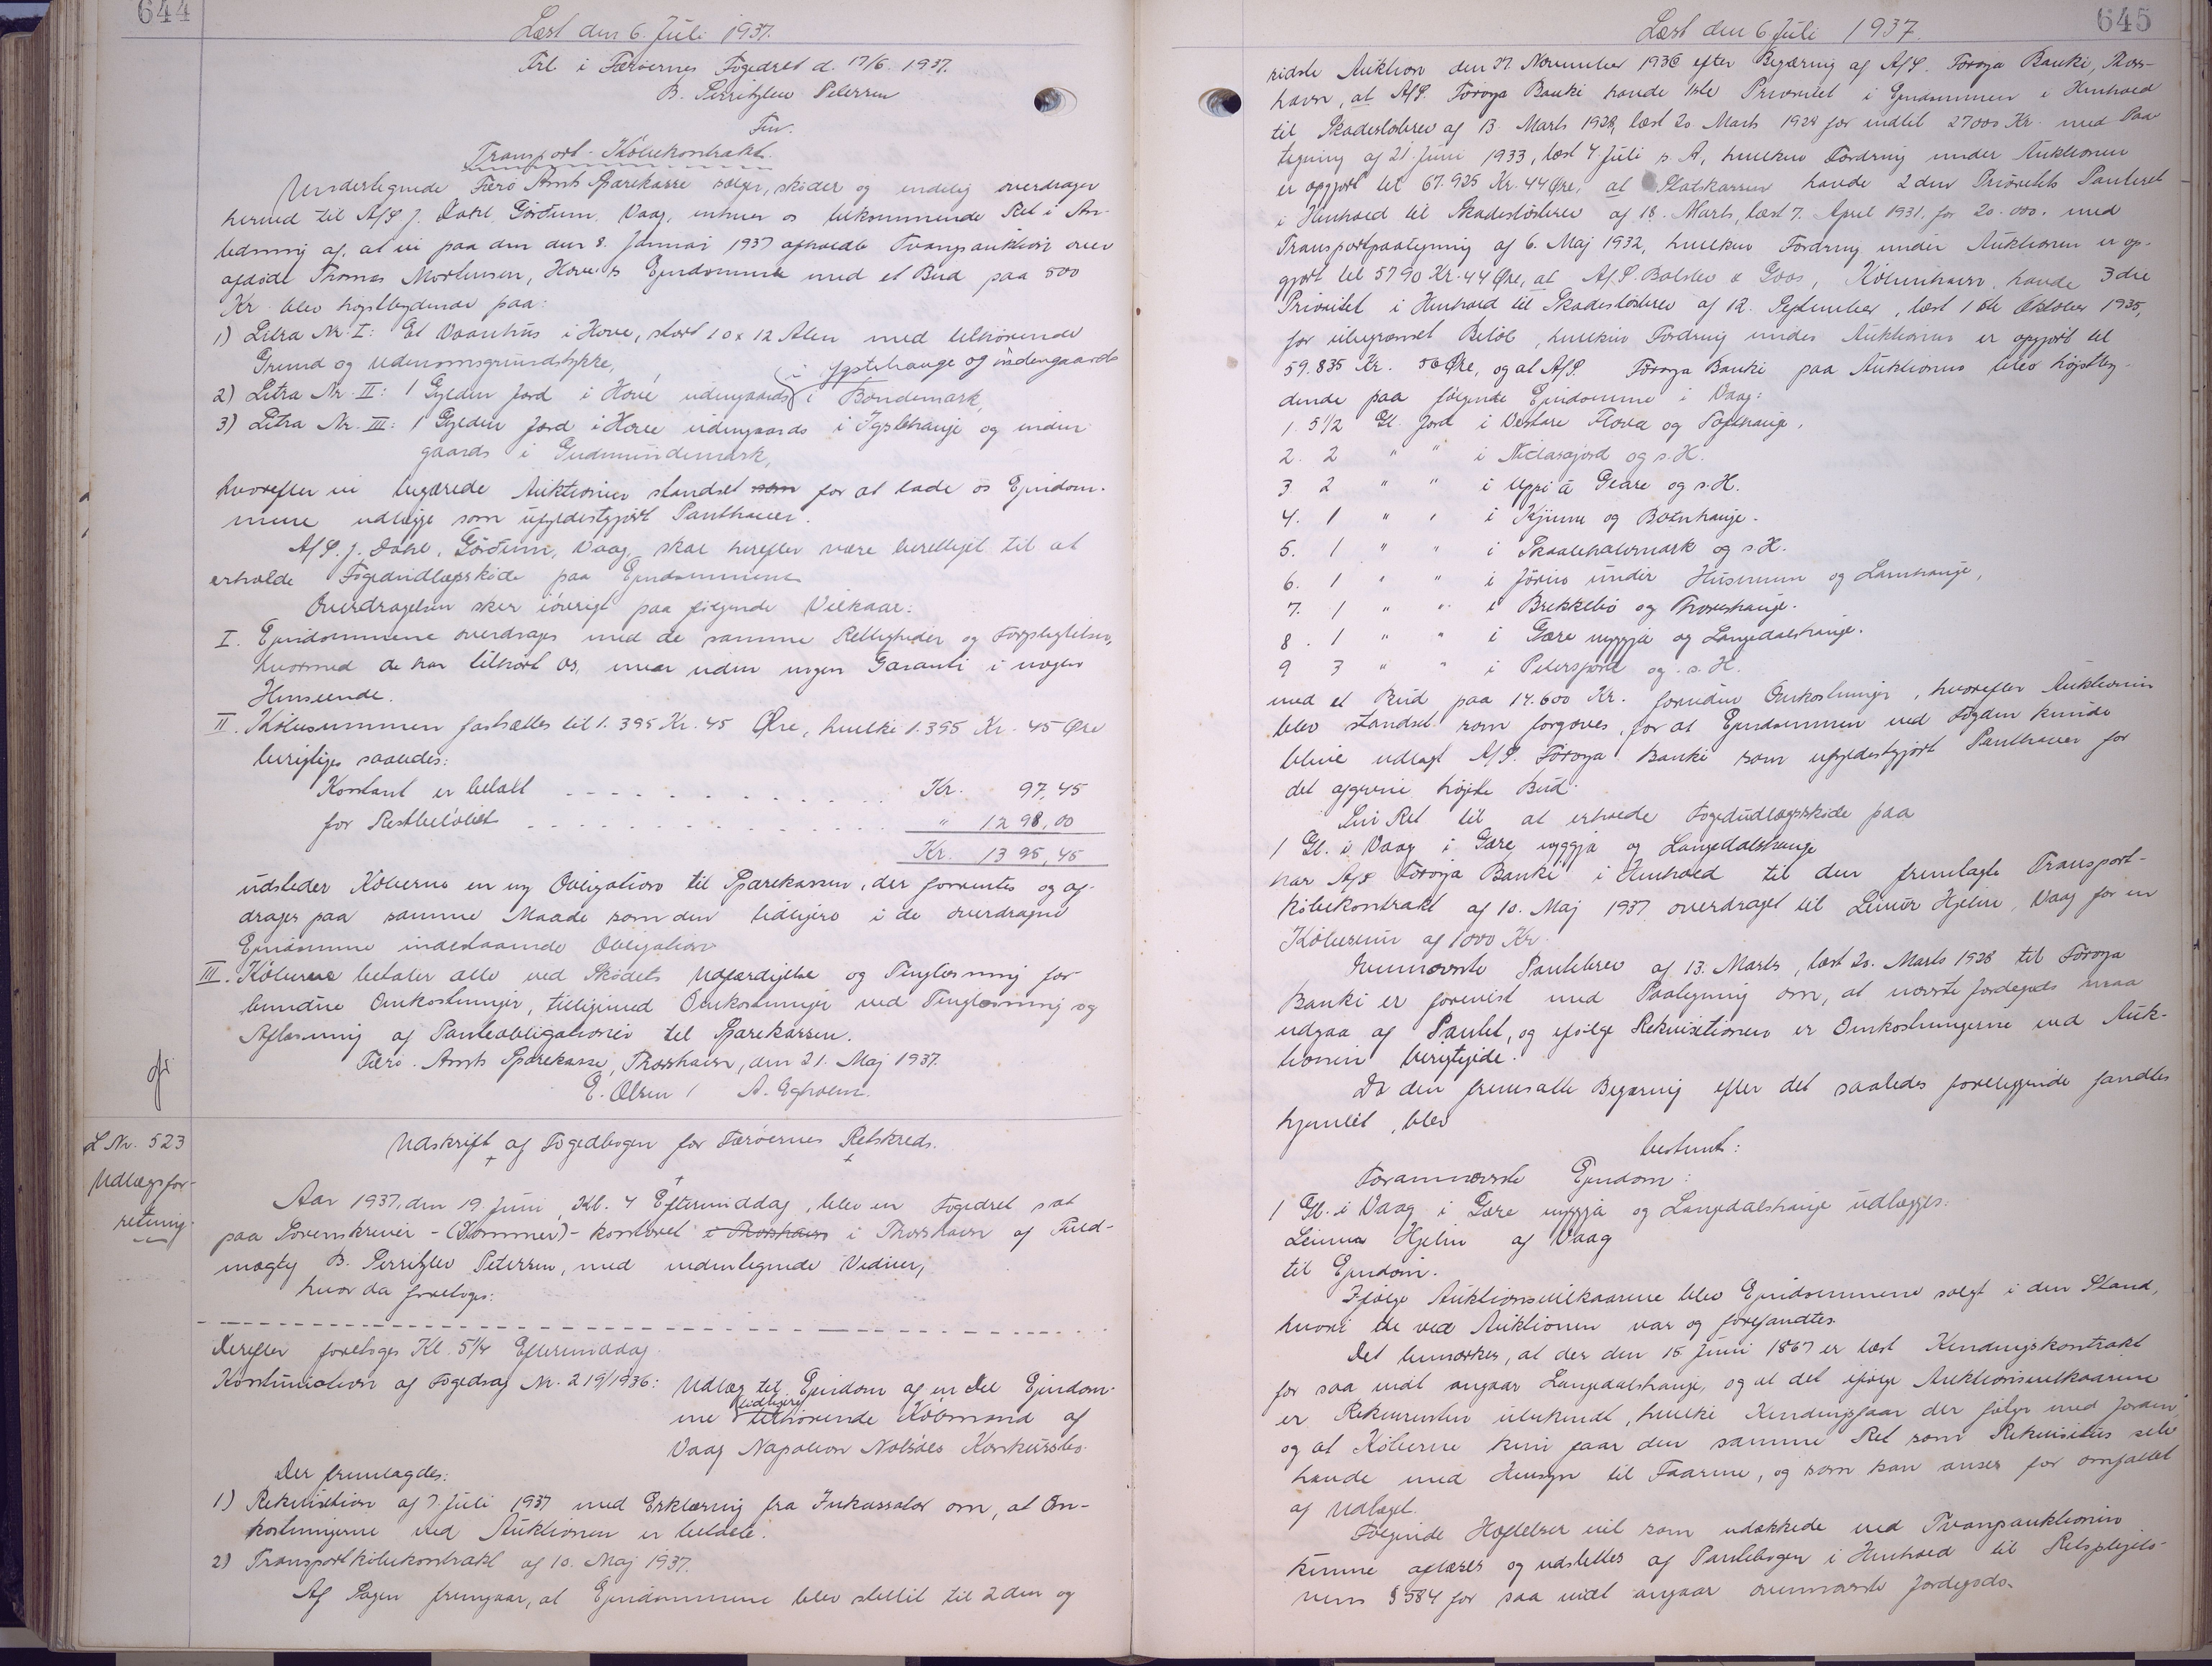 644
Læst den 6. Juli 1937.
Frl i Færøernes Fogedret d. 19/6 1937.
B. Serritzlew Petersen
Fm.
Transport-Købekontrakt.
Undertegnede Færø Amts Sparekasse sælger, skøder og endelig overdrager
herved til A/S J. Dahl, Gørðum, Vaag, enhver os tilkommende Ret i An-
ledning af, at vi paa den den 8. Januar 1937 afholdte Tvangsauktion over
afdøde Thomas Mortensen, Hove's Ejendomme med et Bud paa 500
Kr. blev højstbydende paa:
1) Litra Nr. I: Et Vaanhus i Hove, stort 10 x 12 Alen med tilhørende
Grund og udenomsgrundstykke,
2) Litra Nr. II: 1 Gylden Jord i Hove udengaards i Ygstehauge og indengaards i Bondemark,
3) Litra Nr. III: 1 Gylden Jord i Hove udengaards i Ygstehauje og inden
gaards i Gudmundemark,
hvorefter vi begærede Auktionen standset som for at lade os Ejendom-
mene udlægge som ufyldestgjort Panthaver.
A/S. J. Dahl, Gørðum, Vaag, skal herefter være berettiget til at
erholde Fogedudlægsskøde paa Ejendommene
Overdragelsen sker iøvrigt paa følgende Vilkaar:
I. Ejendommene overdrages med de samme Rettigheder og Forpligtelser,
hvormed de har tilhørt os, men uden nogen Garanti i nogen
Henseende.
II. Købesummen fastsættes til 1.395 Kr. 45 Øre, hvilke 1.395 Kr. 45 Øre
berigtiges saaledes:
Kontant er betalt - - - Kr. 97,45
for Restbeløbet - - - " 1298,00
Kr. 1395,45
udsteder Køberne en ny Obligation til Sparekassen, der forrentes og af-
drages paa samme Maade som den tidligere i de overdragne
Ejendomme indestaaende Obligation
III. Køberne betaler alle ved Skødets Udfærdigelse og Tinglæsning for-
bundne Omkostninger, tilligemed Omkostninger ved Tinglæsning og
Aflæsning af Panteobligationer til Sparekassen.
Færø Amts Sparekasse, Thorshavn, den 21. Maj 1937.
E. Olsen / A. Egholm.
L Nr. 523
Udlægsfor-
retning.
Udskrift af Fogedbogen for Færøernes Retskreds.
Aar 1937, den 19 Juni Kl. 4 Eftermiddag, blev en Fogedret sat
paa Sorenskriver-(Dommer)-kontoret i Thorshavn i Thorshavn af Fuld-
mægtig B. Serritzlew Petersen, med undertegnede Vidner,
hvor da foretoges:
Derefter foretoges Kl. 5 1/4 Eftermiddag.
Kontinuation af Fogedsag Nr. 219/1936: Udlæg til Ejendom af en Del Ejendom-
me tidligere tilhørende Købmand af
Vaag Napoleon Nolsøes Konkursbo.
Der fremlagdes:
1) Rekvisition af 7. Juli 1937 med Erklæring fra Inkassator om, at Om-
kostningerne ved Auktionen er betalte.
2) Transportkøbekontrakt af 10. Maj 1937.
Af Sagen fremgaar, at Ejendommene blev stillet til 2den og
645
Læst den 6 Juli 1937.
sidste Auktion den 27. November 1936 efter Begæring af A/S. Føroya Banki, Thors-
havn, at A/S. Føroya Banki havde 1ste Prioritet i Ejendommen i Henhold
til Skadesløsbrev af 13. Marts 1928, læst 20 Marts 1928 for indtil 27000 Kr. med Paa-
tegning af 21 Juni 1933, læst 4 Juli s. A, hvilken Fordring under Auktionen
er opgjort til 67.925 Kr. 44 Øre, at Statskassen havde 2den Prioritets Panteret
i Henhold til Skadesløsbrev af 18. Marts, læst 7. April 1931, for 20.000. med
Transportpaategning af 6. Maj 1932, hvilken Fordring under Auktionen er op-
gjort til 5790 Kr. 44 Øre, at A/S. Balslev & Goos, København, havde 3die
Prioritet i Henhold til Skadesløsbrev af 12. September, læst 1ste Oktober 1935,
for ubegrænset Beløb, hvilken Fordring under Auktionen er opgjort til
59.835 Kr. 50 Øre, og at A/S. Føroya Banki paa Auktionen blev højstby-
dende paa følgende Ejendomme i Vaag:
1. 5 1/2 Gl. Jord i Vestare Flova og Tofthauje.
2. 2 " " i Niclasajord og s. H.
3 2 " " i Uppi á Geare og s. H.
4. 1 " " i Kjunu og Botnhauje.
5. 1 " " i Skaalehalvmark og s H.
6. 1 " " i Jørin under Húsunum og Lamhauje,
7. 1 " " i Brekkebø og Thoreshauje.
8. 1 " " i Gære nyggja og Langedalshauje.
9 3 " " i Petersjord og s. H.
med et Bud paa 14.600 Kr. foruden Omkostninger, hvorefter Auktionen
blev standset som forgæves, for at Ejendommen ved Fogden kunde
blive udlagt A/S. Føroya Banki som ufyldestgjort Panthaver for
det afgivne højste Bud.
Sin Ret til at erholde Fogedudlægsskøde paa
1 Gl. i Vaag i Gære nyggja og Langedalshauge
har A/S Føroya Banki i Henhold til den fremlagte Transport-
købekontrakt af 10. Maj 1937 overdraget til Leivur Hjelm, Vaag for en
Købesum af 1000 Kr.
Ovennævnte Pantebrev af 13. Marts, læst 20. Marts 1928 til Føroya
Banki er forevist med Paategning om, at nævnte Jordegods maa
udgaa af Pantet, og ifølge Rekvisitionen er Omkostningerne ved Auk-
tionen berigtigede.
Da den fremsatte Begæring efter det saaledes foreliggende fandtes
hjemlet, blev
bestemt:
Forannævnte Ejendom:
1 Gl. i Vaag i Gære nyggja og Langedalshauje udlægges:
Leivur Hjelm af Vaag
til Ejendom.
Ifølge Auktionsvilkaarene blev Ejendommene solgt i den Stand,
hvori de ved Auktionen var og forefandtes.
Det bemærkes, at der den 15 Juni 1867 er læst Kendingskontrakt
for saa vidt angaar Langedalshauje, og at det ifølge Auktionsvilkaarene
er Rekvirenten ubekendt, hvilke Kendingsfaar der følger med Jorden
og at Køberne kun faar den samme Ret som Rekvisitus selv
havde med Hensyn til Faarene, og som kan anses for omfattet
af Udlæget.
Følgende Hæftelser vil som udækkede ved Tvangsauktionen
kunne aflæses og udslettes af Pantebogen i Henhold til Retsplejelo-
vens § 584 for saa vidt angaar ovennævnte Jordegods.